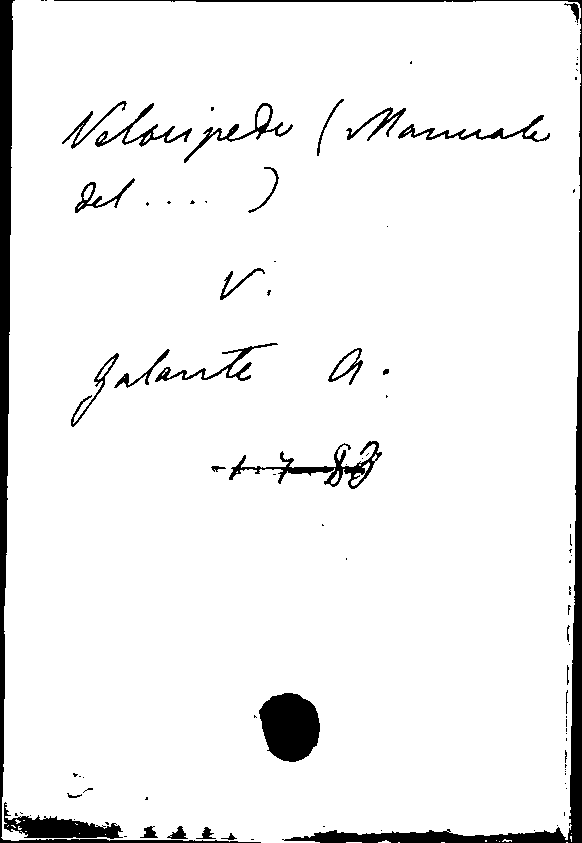 Velocipede (Manuale
del .... )
V.
Galante A.